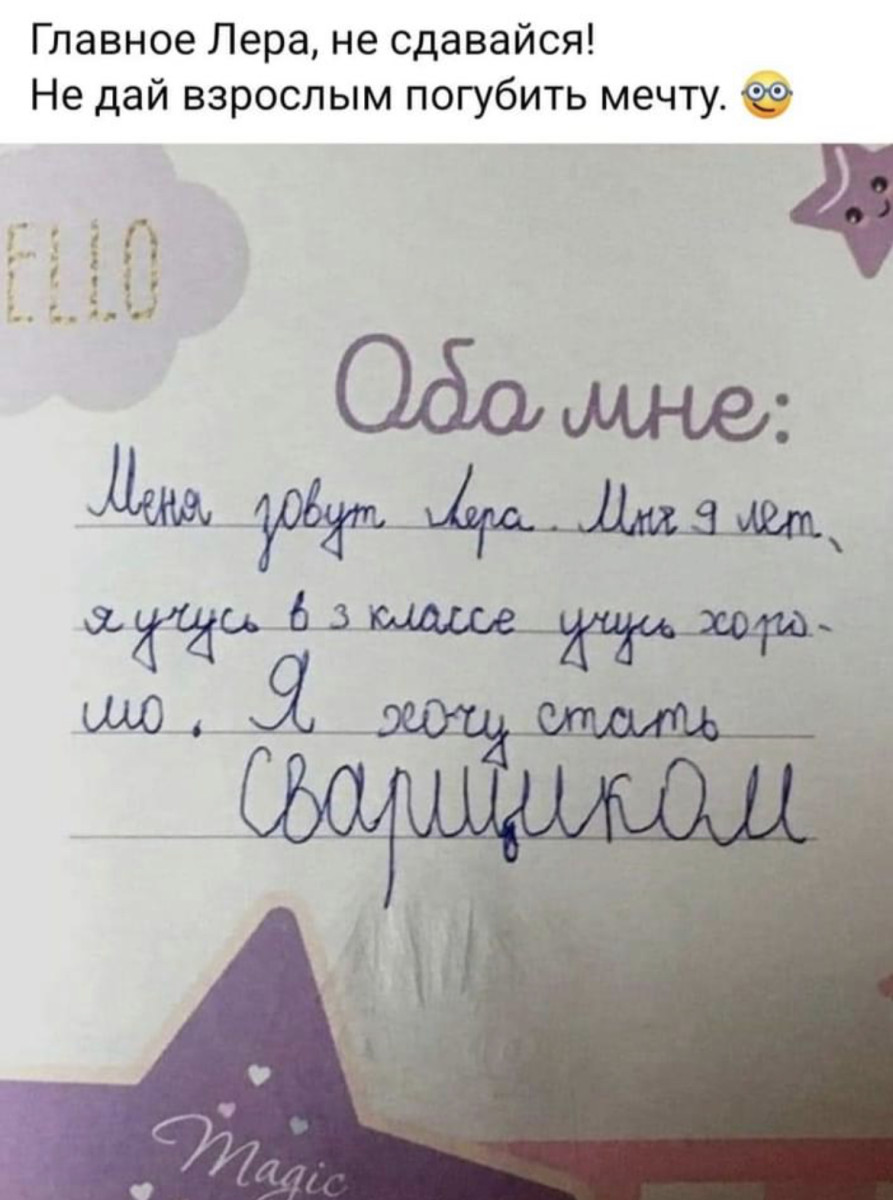 Главное Лера, не сдавайся!
Не дай взрослым погубить мечту. 🤓
ELLO
Обо мне:
Меня зовут Лера. Мне 9 лет,
я учусь в 3 классе учусь хоро-
шо. Я хочу стать
Сварщиком
Magic